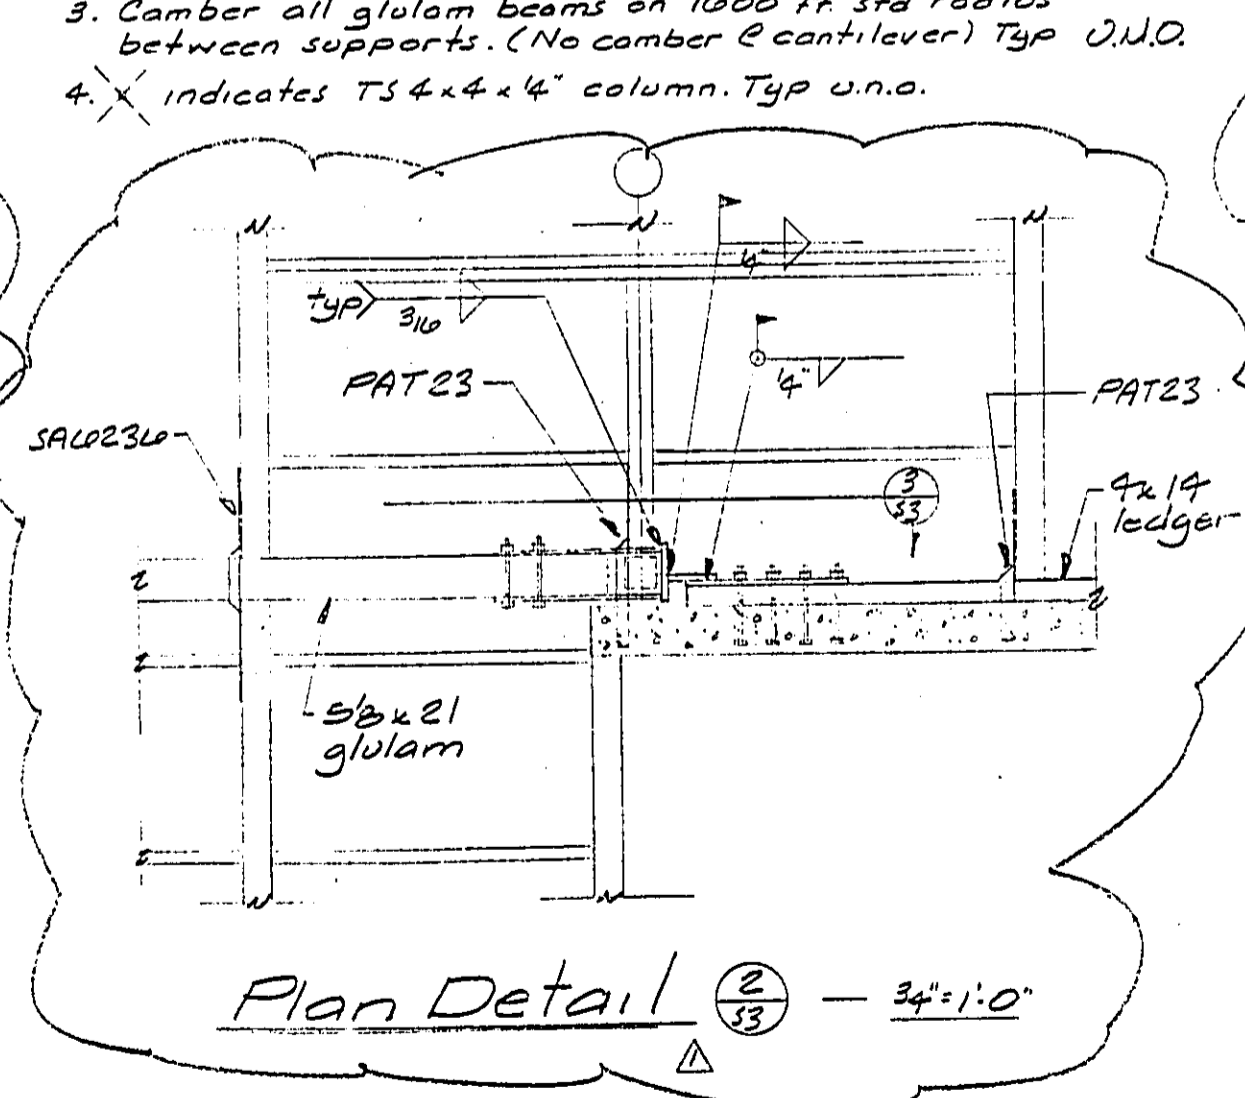 3. Camber all glulam beams on 1600 ft. std radius
between supports. (No camber @ cantilever) Typ U.N.O.
4. X indicates TS 4x4x1/4" column. Typ u.n.o.
1/4"
typ 3/16
1/4"
PAT23
PAT23
SA6236
3
S3
4x14
ledger
5 1/8 x 21
glulam
Plan Detail 2/S3 — 3/4"=1'-0"
1